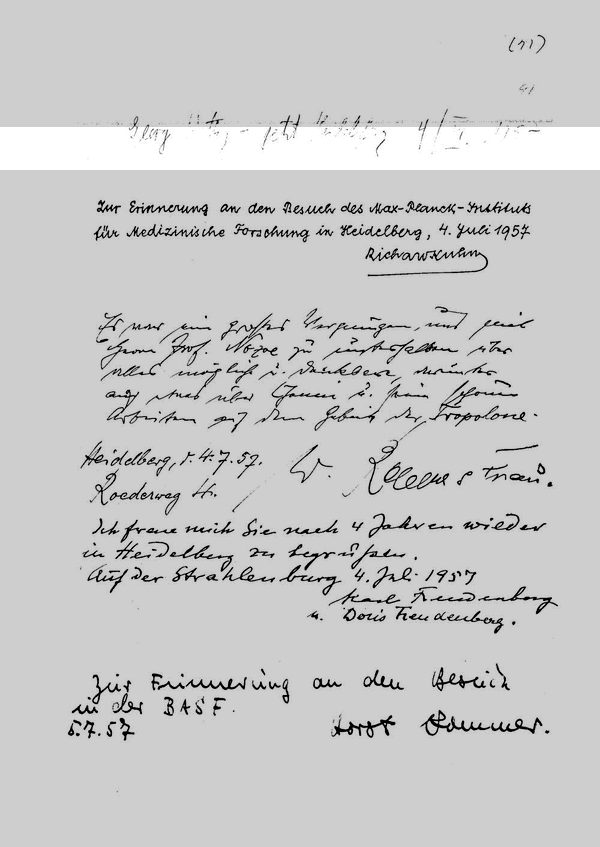 (71)
Georg Wittig - jetzt Heidelberg 4/
Zur Erinnerung an den Besuch des Max-Planck-Instituts
für Medizinische Forschung in Heidelberg, 4. Juli 1957
Richard Kuhn
Es war ein großes Vergnügen, sich mit
Herrn Prof. Nozoe zu unterhalten über
alles mögliche u. denkbare, darunter
auch etwas über Chemie u. seine schönen
Arbeiten auf dem Gebiet der Tropolone.
Heidelberg, d. 4.7.57.
Roederweg
W. u. Frau.
Ich freue mich Sie nach 4 Jahren wieder
in Heidelberg zu begrüßen.
Auf der Strahlenburg 4. Juli 1957
Karl Freudenberg
u. Doris Freudenberg.
Zur Erinnerung an den Besuch
in der BASF.
5.7.57 Horst Pommer.